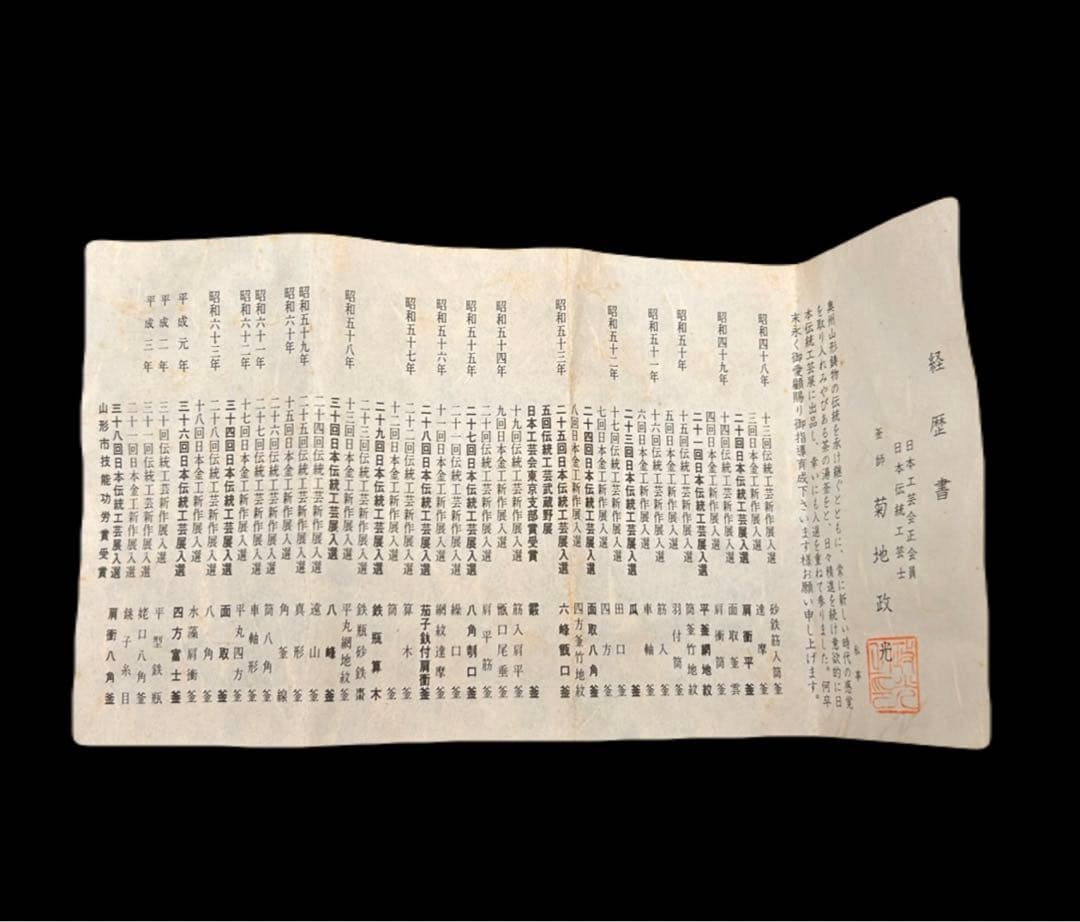 経歴書
日本工芸会正会員
日本伝統工芸士
釜師 菊地政光
私事
奥州山形鋳物の伝統を承け継ぐとともに、常に新しい時代の感覚
を取り入れみやびある茶の湯釜をと、日々精進を続け意欲的に日
本伝統工芸展に出品し、幸いにも入選を重ねて参りました。何卒
末永く御愛顧賜り御指導育成下さいます様お願い申し上げます。
昭和四十八年 十三回伝統工芸新作展入選 砂鉄筋入筒釜
三回日本金工新作展入選 達摩釜
二十回日本伝統工芸展入選 肩衝平釜
昭和四十九年 十四回伝統工芸新作展入選 面取釜雲
四回日本金工新作展入選 肩衝筒釜
二十一回日本伝統工芸展入選 平釜網地紋
昭和五十年 十五回伝統工芸新作展入選 筒釜竹地紋
五回日本金工新作展入選 羽付筒釜
昭和五十一年 十六回伝統工芸新作展入選 筋入釜
六回日本金工新作展入選 車軸釜
二十三回日本伝統工芸展入選 瓜釜
昭和五十二年 十七回伝統工芸新作展入選 田口釜
七回日本金工新作展入選 四方釜
二十四回日本伝統工芸展入選 面取八角釜
昭和五十三年 八回日本金工新作展入選 四方釜竹地紋
二十五回日本伝統工芸展入選 六峰甑口釜
五回伝統工芸武蔵野展
日本工芸会東京支部賞受賞 霰釜
昭和五十四年 十九回伝統工芸新作展入選 筋入肩平釜
九回日本金工新作展入選 甑口尾垂釜
昭和五十五年 二十回伝統工芸新作展入選 肩平筋釜
二十七回日本伝統工芸展入選 八角制口釜
昭和五十六年 二十一回伝統工芸新作展入選 繰口釜
十一回日本金工新作展入選 網紋達摩釜
二十八回日本伝統工芸展入選 茄子釻付肩衝釜
昭和五十七年 二十二回伝統工芸新作展入選 算木釜
十二回日本金工新作展入選 筒釜
二十九回日本伝統工芸展入選 鉄瓶算木
二十三回伝統工芸新作展入選 鉄瓶砂鉄棗
昭和五十八年 十三回日本金工新作展入選 平丸網地紋釜
三十回日本伝統工芸展入選 八峰釜
昭和五十九年 二十四回伝統工芸新作展入選 遠山釜
二十五回伝統工芸新作展入選 真形釜
昭和六十年 十五回日本金工新作展入選 角釜線
昭和六十一年 二十六回伝統工芸新作展入選 筒八角釜
昭和六十二年 二十七回伝統工芸新作展入選 車軸形釜
十七回日本金工新作展入選 平丸四方釜
三十四回日本伝統工芸展入選 面取釜
昭和六十三年 二十八回伝統工芸新作展入選 八角釜
十八回日本金工新作展入選 水藻肩衝釜
平成元年 三十六回日本伝統工芸展入選 四方富士釜
平成二年 三十回伝統工芸新作展入選 平型鉄瓶
平成三年 三十一回伝統工芸新作展入選 姥口八角釜
二十一回日本金工新作展入選 銚子糸目
三十八回日本伝統工芸展入選 肩衝八角釜
山形市技能功労賞受賞